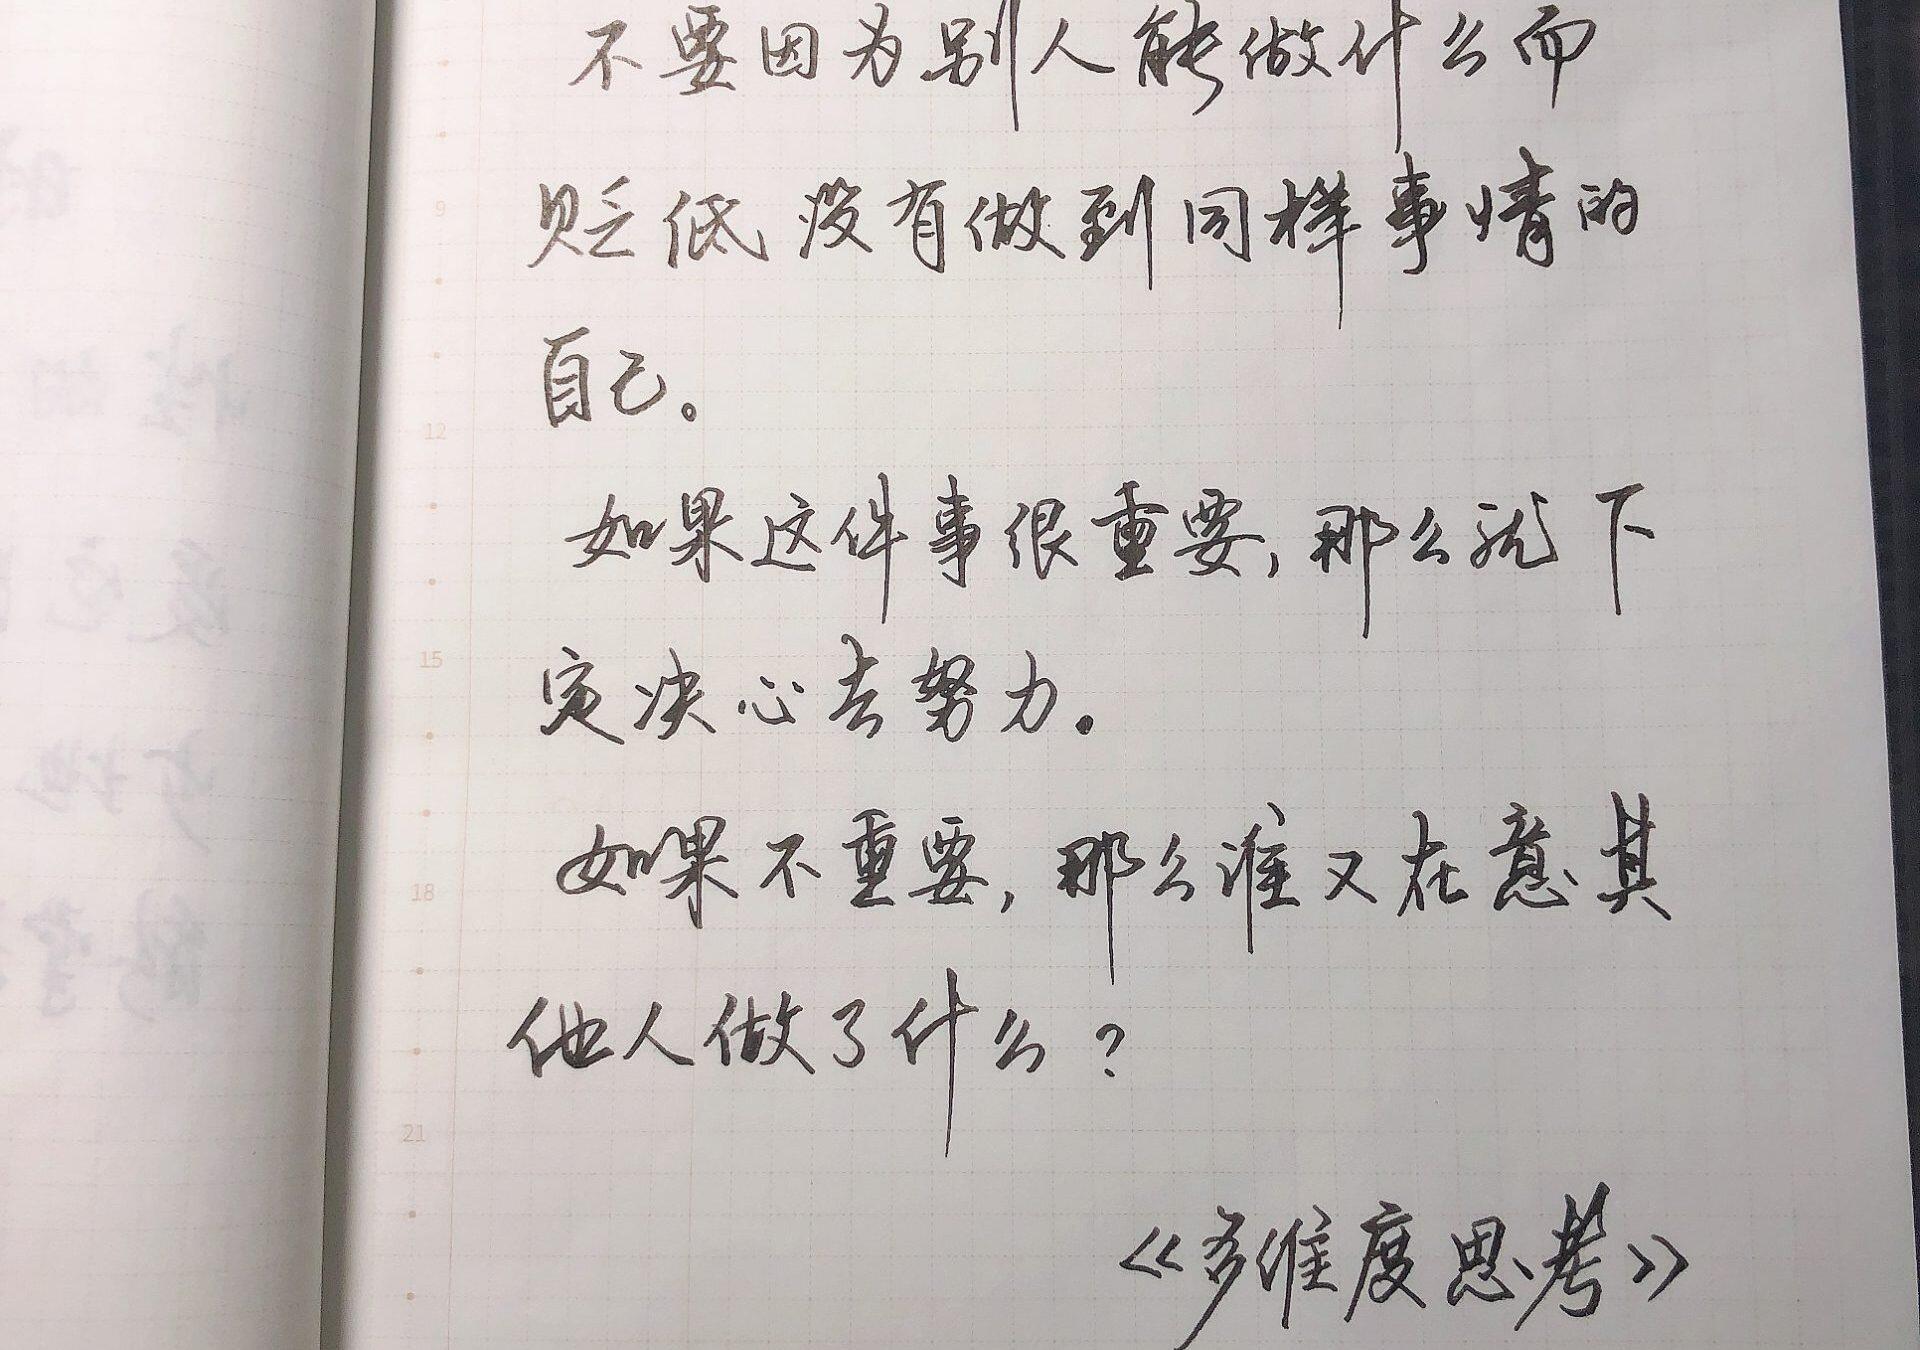 不要因为别人能做什么而
贬低没有做到同样事情的
自己。
如果这件事很重要,那么就下
定决心去努力。
如果不重要,那么谁又在意其
他人做了什么?
《多维度思考》
9
12
15
18
21